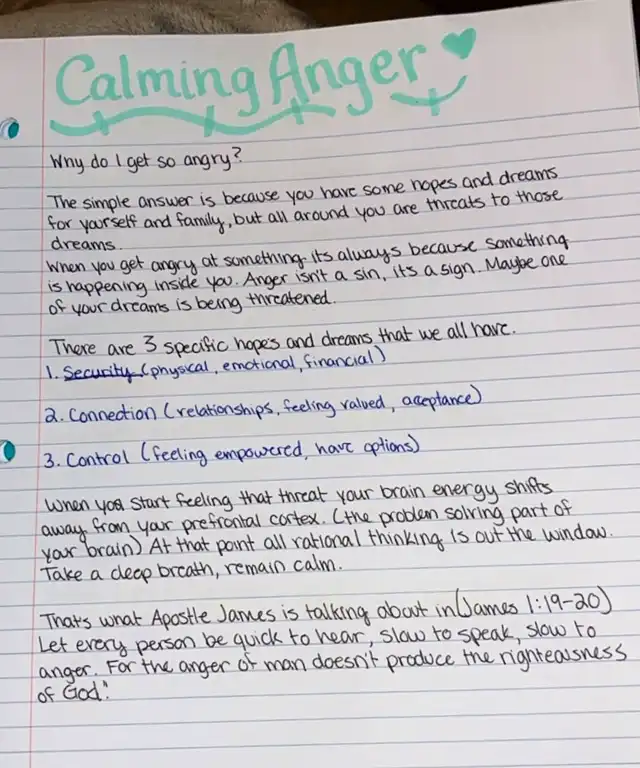 Calming Anger
Why do I get so angry?
The simple answer is because you have some hopes and dreams
for yourself and family, but all around you are threats to those
dreams.
When you get angry at something its always because something
is happening inside you. Anger isn't a sin, its a sign. Maybe one
of your dreams is being threatened.
There are 3 specific hopes and dreams that we all have.
1. Security (physical, emotional, financial)
2. Connection (relationships, feeling valued, acceptance)
3. Control (feeling empowered, have options)
When you start feeling that threat your brain energy shifts
away from your prefrontal cortex. (the problem solving part of
your brain) At that point all rational thinking is out the window.
Take a deep breath, remain calm.
Thats what Apostle James is talking about in (James 1:19-20)
Let every person be quick to hear, slow to speak, slow to
anger. For the anger of man doesn't produce the righteousness
of God."